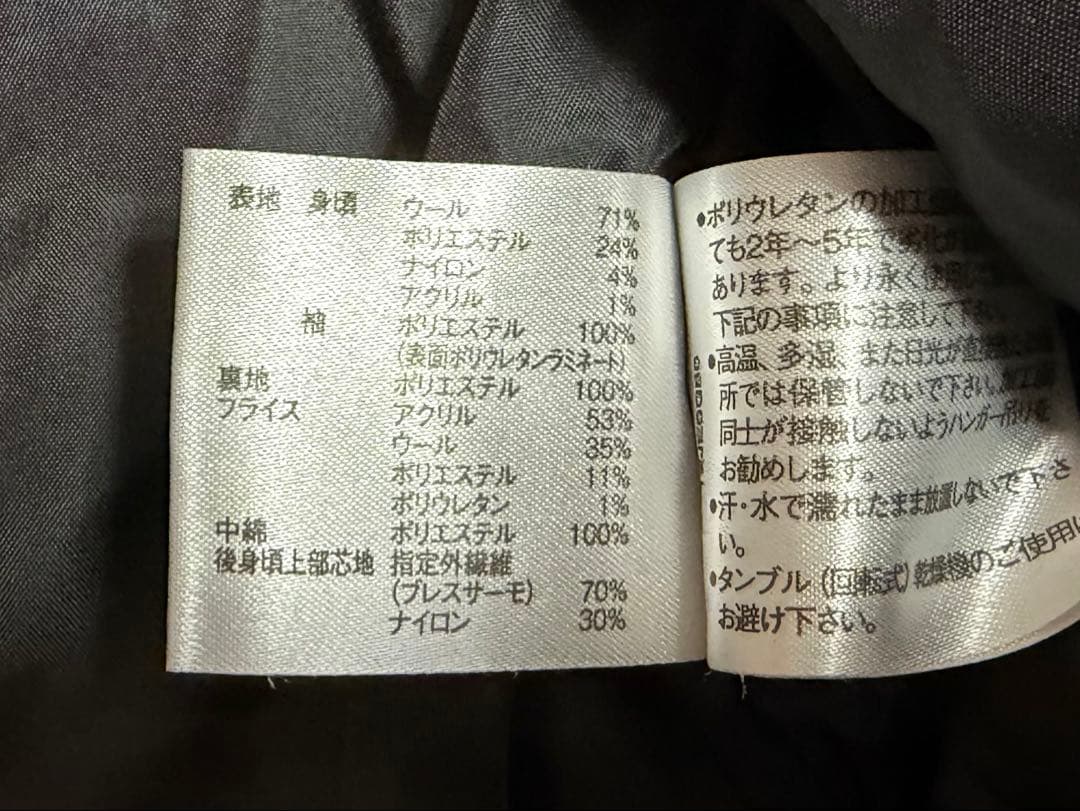 表地 身頃 ウール 71%
ポリエステル 24%
ナイロン 4%
アクリル 1%
袖 ポリエステル 100%
(表面ポリウレタンラミネート)
裏地 ポリエステル 100%
フライス アクリル 53%
ウール 35%
ポリエステル 11%
ポリウレタン 1%
中綿 ポリエステル 100%
後身頃上部芯地 指定外繊維
(ブレスサーモ) 70%
ナイロン 30%
•ポリウレタンの加工
ても2年〜5年で劣化
あります。より永く
下記の事項に注意して下さ
•高温、多湿、また日光が直
所では保管しないで下さい。加工
同士が接触しないようハンガー吊りを
お勧めします。
•汗・水で濡れたまま放置しないで下さ
い。
•タンブル(回転式)乾燥機のご使用は
お避け下さい。